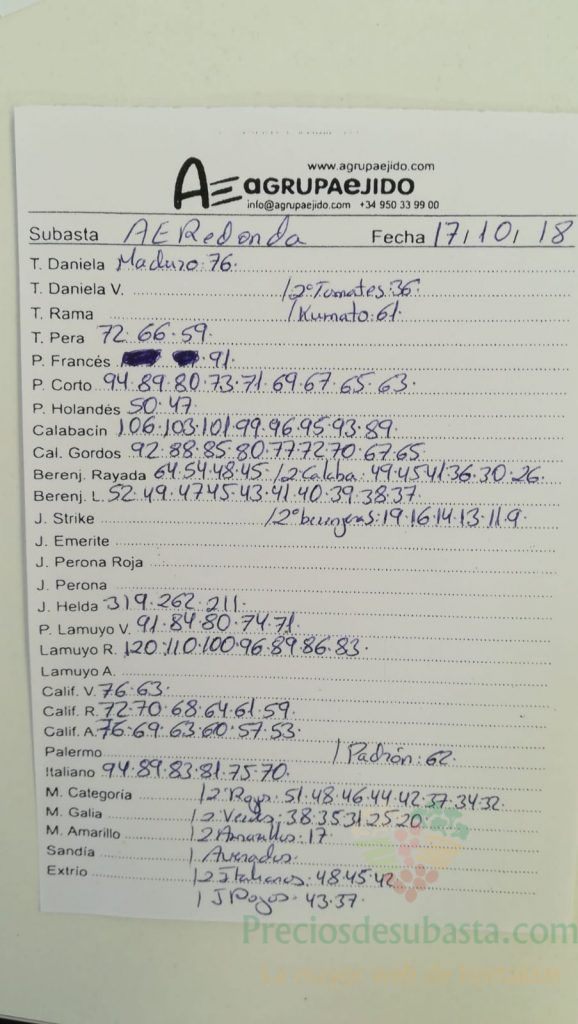 www.agrupaejido.com
AE AGRUPAEJIDO
info@agrupaejido.com +34 950 33 99 00
Subasta AE Redonda Fecha 17/10/18
T. Daniela Maduro·76·
T. Daniela V. /2º Tomates·36·
T. Rama /Kumato·61·
T. Pera 72·66·59·
P. Francés 91·
P. Corto 94·89·80·73·71·69·67·65·63·
P. Holandés 50·47·
Calabacín 106·103·101·99·96·95·93·89·
Cal. Gordos 92·88·85·80·77·72·70·67·65·
Berenj. Rayada 64·54·48·45·/2 Calaba·49·45·41·36·30·26·
Berenj. L. 52·49·47·45·43·41·40·39·38·37·
J. Strike /2º berenjenas·19·16·14·13·11·9·
J. Emerite
J. Perona Roja
J. Perona
J. Helda 319·262·211·
P. Lamuyo V. 91·84·80·74·71·
Lamuyo R. 120·110·100·96·89·86·83·
Lamuyo A.
Calif. V. 76·63·
Calif. R. 72·70·68·64·61·59·
Calif. A. 76·69·63·60·57·53·
Palermo /Padrón·62·
Italiano 94·89·83·81·75·70·
M. Categoría /2 Rojos·51·48·46·44·42·37·34·32·
M. Galia /2 Verdes·38·35·31·25·20·
M. Amarillo /2 Amarillos·17·
Sandía /
Extrio /2 Italianos·48·45·42
/J Rojos·43·37·
Preciosdesubasta.com